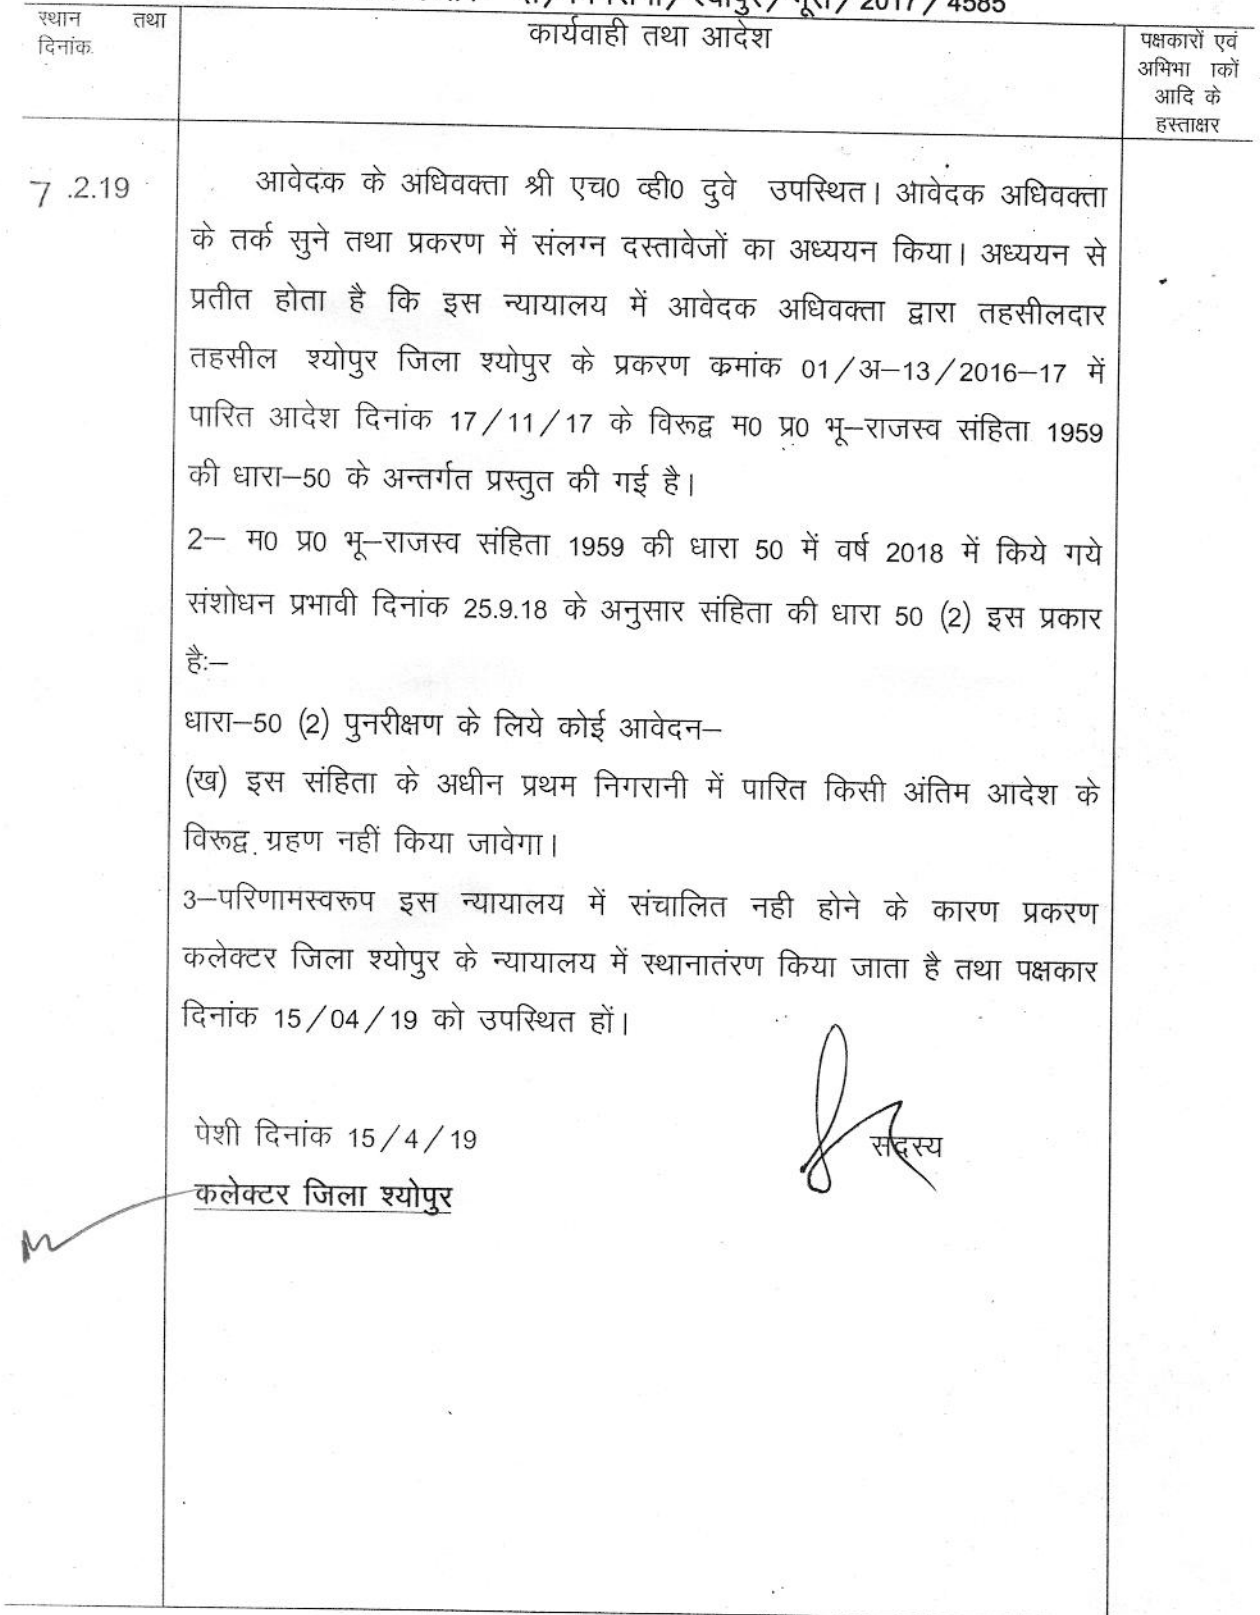 / श्योपुर / भू.रा / 2017 / 4585
स्थान तथा
दिनांक
कार्यवाही तथा आदेश
पक्षकारों एवं
अभिभा कों
आदि के
हस्ताक्षर
7 .2.19
आवेदक के अधिवक्ता श्री एच0 व्ही0 दुवे उपस्थित। आवेदक अधिवक्ता
के तर्क सुने तथा प्रकरण में संलग्न दस्तावेजों का अध्ययन किया। अध्ययन से
प्रतीत होता है कि इस न्यायालय में आवेदक अधिवक्ता द्वारा तहसीलदार
तहसील श्योपुर जिला श्योपुर के प्रकरण कमांक 01/अ–13/2016–17 में
पारित आदेश दिनांक 17/11/17 के विरूद्व म0 प्र0 भू–राजस्व संहिता 1959
की धारा–50 के अन्तर्गत प्रस्तुत की गई है।
2– म0 प्र0 भू–राजस्व संहिता 1959 की धारा 50 में वर्ष 2018 में किये गये
संशोधन प्रभावी दिनांक 25.9.18 के अनुसार संहिता की धारा 50 (2) इस प्रकार
है:–
धारा–50 (2) पुनरीक्षण के लिये कोई आवेदन–
(ख) इस संहिता के अधीन प्रथम निगरानी में पारित किसी अंतिम आदेश के
विरूद्व ग्रहण नहीं किया जावेगा।
3–परिणामस्वरूप इस न्यायालय में संचालित नही होने के कारण प्रकरण
कलेक्टर जिला श्योपुर के न्यायालय में स्थानातंरण किया जाता है तथा पक्षकार
दिनांक 15/04/19 को उपस्थित हों।
सदस्य
पेशी दिनांक 15/4/19
कलेक्टर जिला श्योपुर